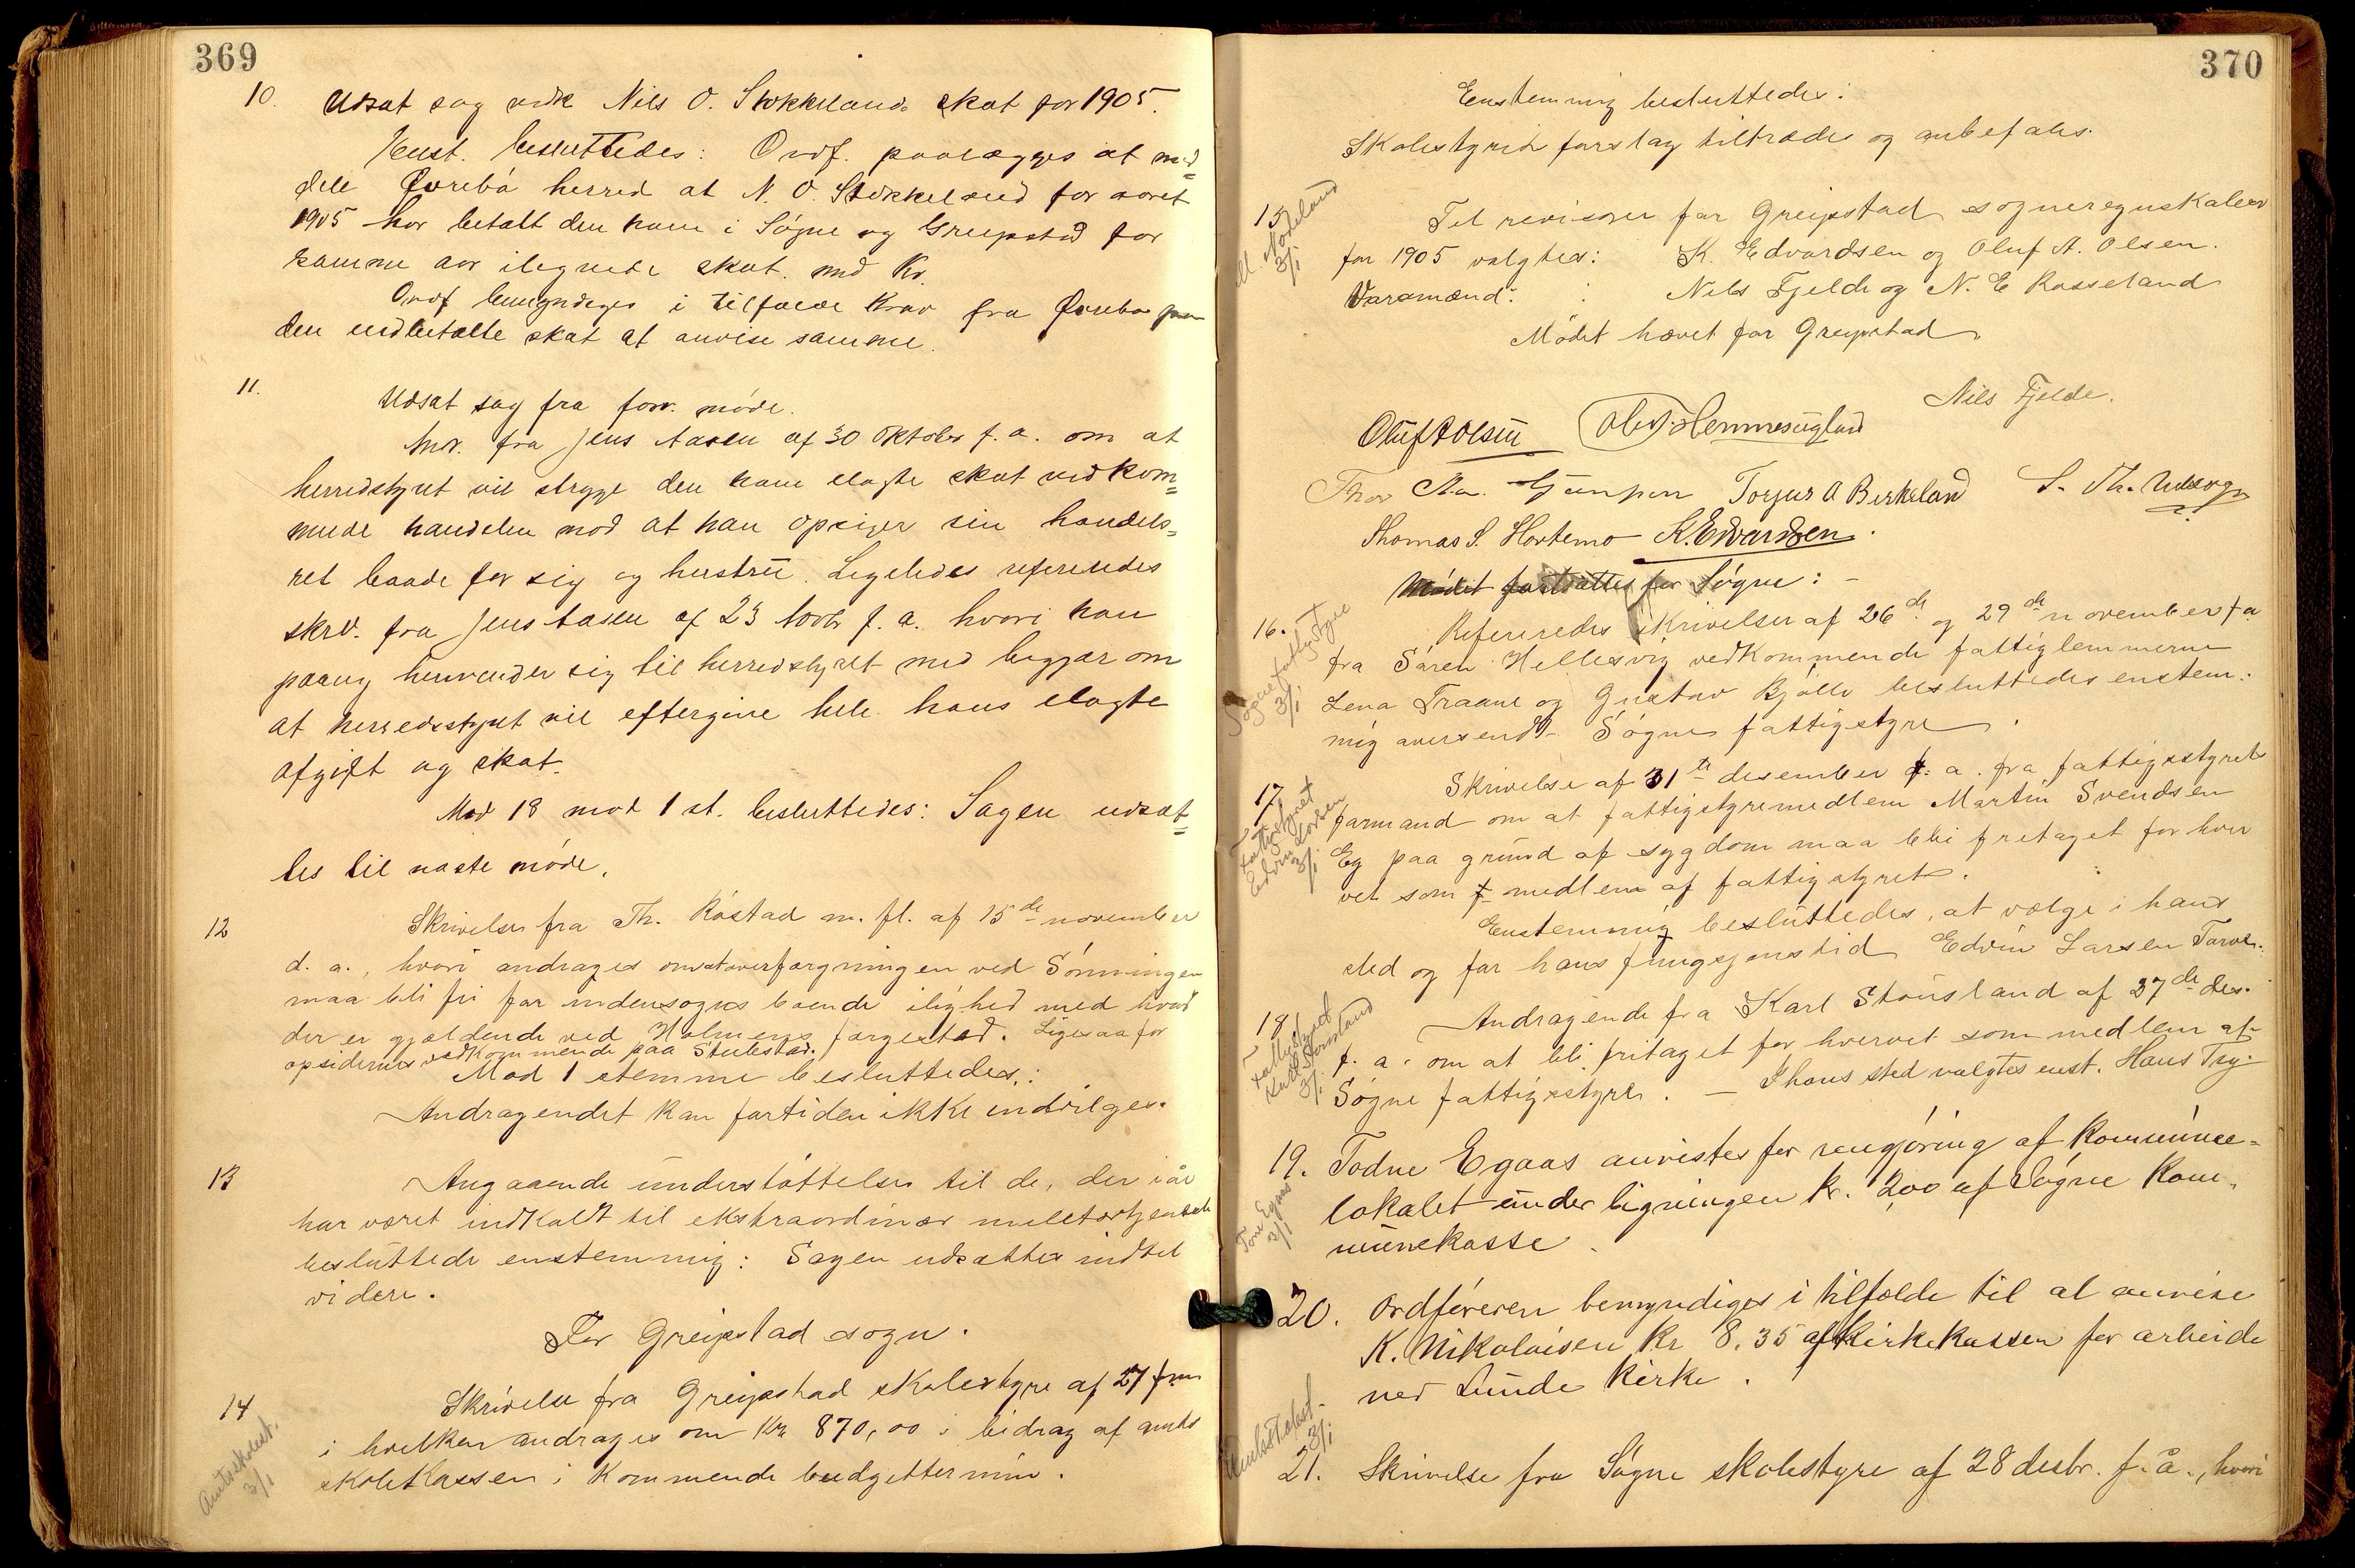 369
10. Udsat sag vedk Nils O. Stokkelands skat for 1905.
Enst. besluttedes: Ordf. paalægges at med=
dele Øvrebø herred at N. O. Stokkeland for aaret
1905 har betalt den ham i Søgne og Greipstad for
samme aar ilignede skat med Kr.
Ordf bemyndiges i tilfælde krav fra Øvrebø paa
den indbetalte skat at anvise samme.
11.
Udsat sag fra forr. møde.
Andr. fra Jens Aasen af 30 oktober f. a. om at
herredstyret vil stryge den ham ilagte skat vedkom=
mende handelen mod at han opsiger sin handels=
ret baade for sig og hustru. Ligeledes refereredes
skrv. fra Jens Aasen af 23 novbr f. a. hvori han
paany henvender sig til herredstyret med begjær om
at herredsstyret vil eftergive hele hans ilagte
afgift og skat.
Mod 18 mod 1 st. besluttedes: Sagen udsæt=
tes til næste møde.
12 Skrivelse fra Th. Røstad m. fl. af 15de november
d. a., hvori andrages om at overfærgningen ved Sønningen
maa bli fri for indensogns boende i lighed med hvad
der er gjældende ved Holmens færgested. Ligesaa for
opsidernes vedkommende paa Stulestad.
Mod 1 stemme besluttedes:
Andragendet kan for tiden ikke indvilges.
13 Angaaende understøttelse til de, der i år
har været indkaldt til ekstraordinær militærtjeneste
besluttede enstemmig: Sagen udsættes indtil
videre.
For Greipstad sogn.
14 Skrivelse fra Greipstad skolestyre af 27 f.m.
i hvilken andrages om Kr 870,00 i bidrag af amts
skolekassen i kommende budgettermin.
Amtsskolest.
3/1
370
Enstemmig besluttedes:
Skolestyrets forslag tiltrædes og anbefales.
15 Til revisorer for Greipstad sogneregnskaber
3/1
for 1905 valgtes: K. Edvardsen og Oluf A. Olsen.
Varamænd: Nils Fjelde og N. E. Rosseland
Mødet hævet for Greipstad.
Nils Fjelde.
Oluf A Olsen Olav Hemmesugland
Thor Aa. Torjus O Birkeland S. Th.
Thomas S. Hortemo K. Edvardsen.
Mødet fortsattes for Søgne: -
16. Refereredes skrivelser af 26de og 29de november f a
Søgne fattigstyre
3/1
fra Søren Hellesvig vedkommende fattiglemmerne
Lena Traane og Gustav Kjølle besluttedes enstem-
mig oversendt Søgne fattigstyre.
17 Skrivelse af 31te desember f. a. fra fattigstyrets
Fattigstyret
Edvin Larsen
3/1
formand om at fattigstyremedlem Martin Svendsen
Eg paa grund af sygdom maa bli fritaget for hver
vet som medlem af fattigstyret.
Enstemmig besluttedes, at vælge i hans
sted og for hans fungsjonstid Edvin Larsen
18 Andragende fra Karl Stousland af 27de des.
Fattigstyret
Karl Stousland
3/1
f. a. om at bli fritaget for hvervet som medlem af
Søgne fattigstyre. - I hans sted valgtes enst. Hans Try.
19. Todne Egaas anvistes for rengjøring af kommune=
Tone Egaas
3/1
lokalet under ligningen kr. 2,00 af Søgne kom-
munekasse.
20. Ordføreren bemyndiges i tilfælde til at anvise
K. Nikolaisen kr 8.35 af kirkekassen for arbeide
ved Lunde kirke.
Amtsskolest.
3/1
21. Skrivelse fra Søgne skolestyre af 28 desbr. f. å., hvori